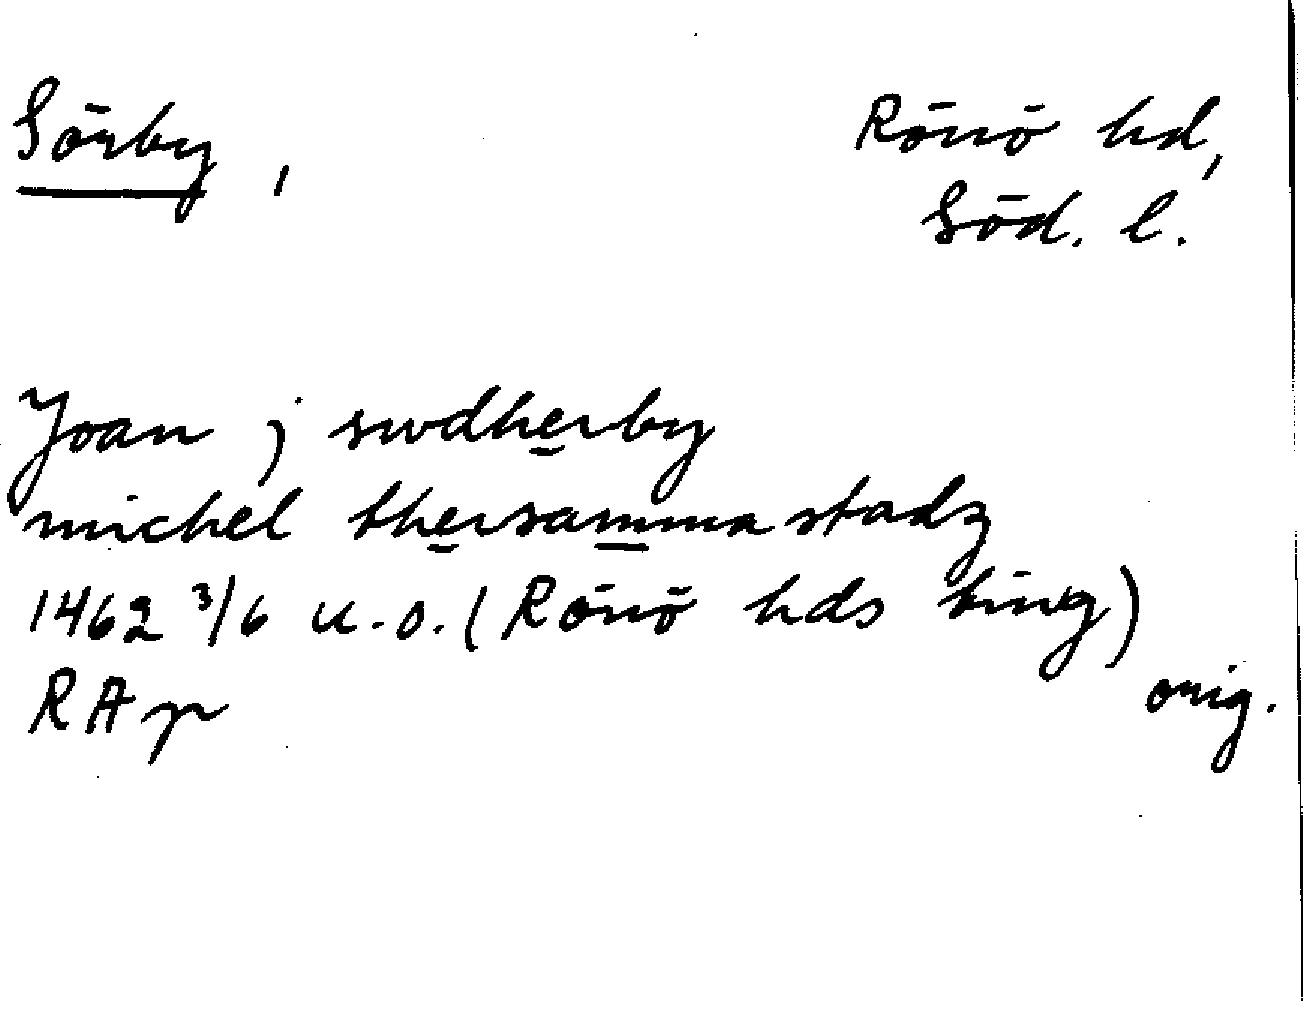 Sörby, Rönö hd,
Söd. l.
Joan j swdherby
michel thersamma stadz
1462 3/6 u.o. (Rönö hds ting)
RAp orig.